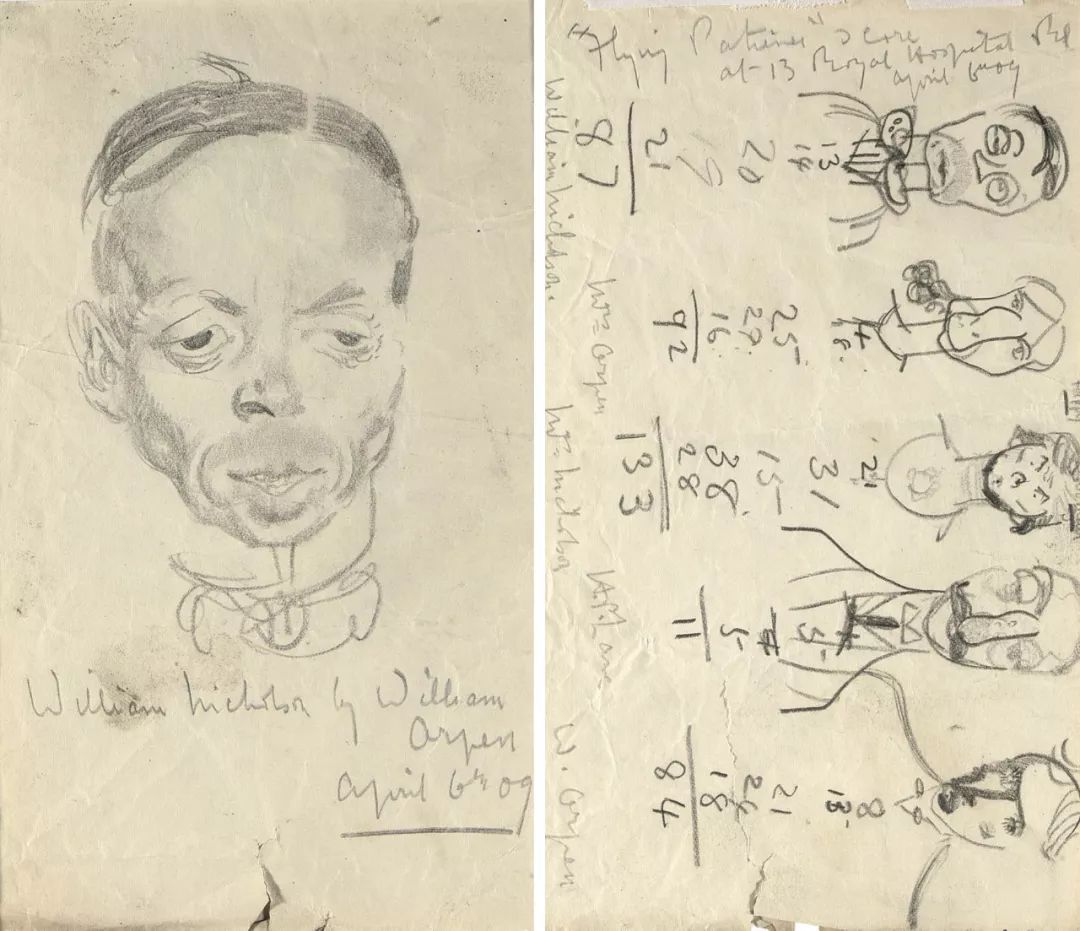 William Nicholson by William
Orpen
April 6th 09
"Flying Patience" Score
at 13 Royal Hospital Rd
April 6th 09
13
14
20
19
21
87
William Nicholson.
4
18.
25
29.
16.
92
Mrs Orpen
21
31
15
38
28
133
Mrs Nicholson
5
5
11
H.P. Lane
8
13.
21
24
18
84
W. Orpen